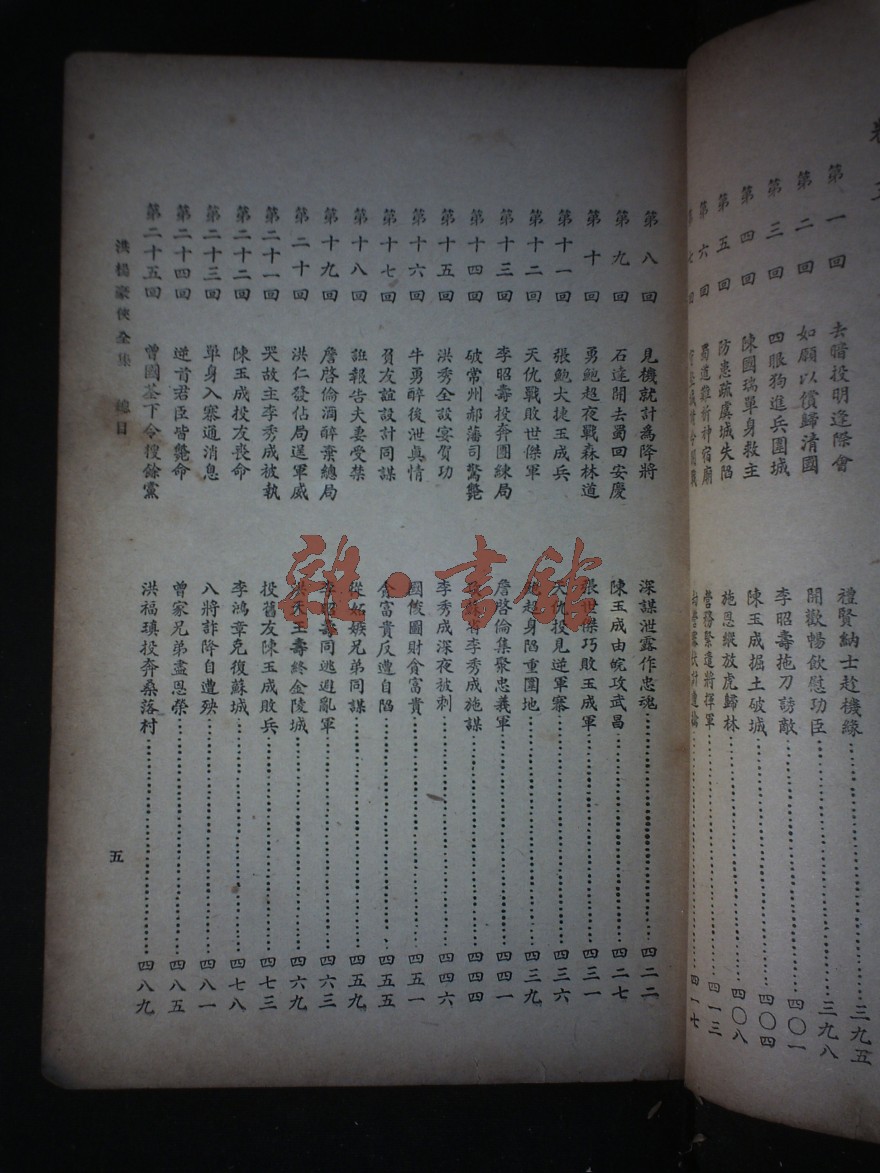 第一回 去暗投明逢際會 禮賢納士趁機緣 三九五
第二回 如願以償歸清國 開歡暢飲慰功臣 三九八
第三回 四眼狗進兵圍城 李昭壽拖刀誘敵 四〇一
第四回 陳國瑞單身救主 陳玉成掘土破城 四〇四
第五回 防患疏虞城失陷 施恩縱放虎歸林 四〇八
第六回 蜀道難祈神宿廟 營務緊遣將揮軍 四一三
四一七
第八回 見機就計爲降將 深謀泄露作忠魂 四二二
第九回 石達開去蜀回安慶 陳玉成由皖攻武昌 四二七
第十回 勇鮑超夜戰森林道 張世傑巧敗玉成軍 四三一
第十一回 張勉大捷玉成兵 天仇投見逆軍寨 四三六
第十二回 天仇戰敗世傑軍 鮑超身陷重圍地 四三九
第十三回 李昭壽投奔團練局 詹啓倫集聚忠義軍 四四一
第十四回 破常州郝藩司驚斃 李秀成施謀 四四四
第十五回 洪秀全設宴賀功 李秀成深夜被刺 四四六
第十六回 牛勇醉後泄真情 圖財貪富貴 四五一
第十七回 貧友誼設計同謀 貪富貴反遭自陷 四五五
第十八回 誑報告夫妻受禁 從妬嫉兄弟同謀 四五九
第十九回 詹啓倫酒醉棄總局 李昭壽同逃避亂軍 四六三
第二十回 洪仁發佔局逞軍威 洪天王壽終金陵城 四六九
第二十一回 哭故主李秀成被執 投舊友陳玉成敗兵 四七三
第二十二回 陳玉成投友喪命 李鴻章克復蘇城 四七八
第二十三回 單身入寨通消息 八將詐降自遭殃 四八一
第二十四回 逆首君臣皆斃命 曾家兄弟盡恩榮 四八五
第二十五回 曾國荃下令搜餘黨 洪福瑱投奔桑落村 四八九
洪楊豪俠全集 總目 五
雜·書館